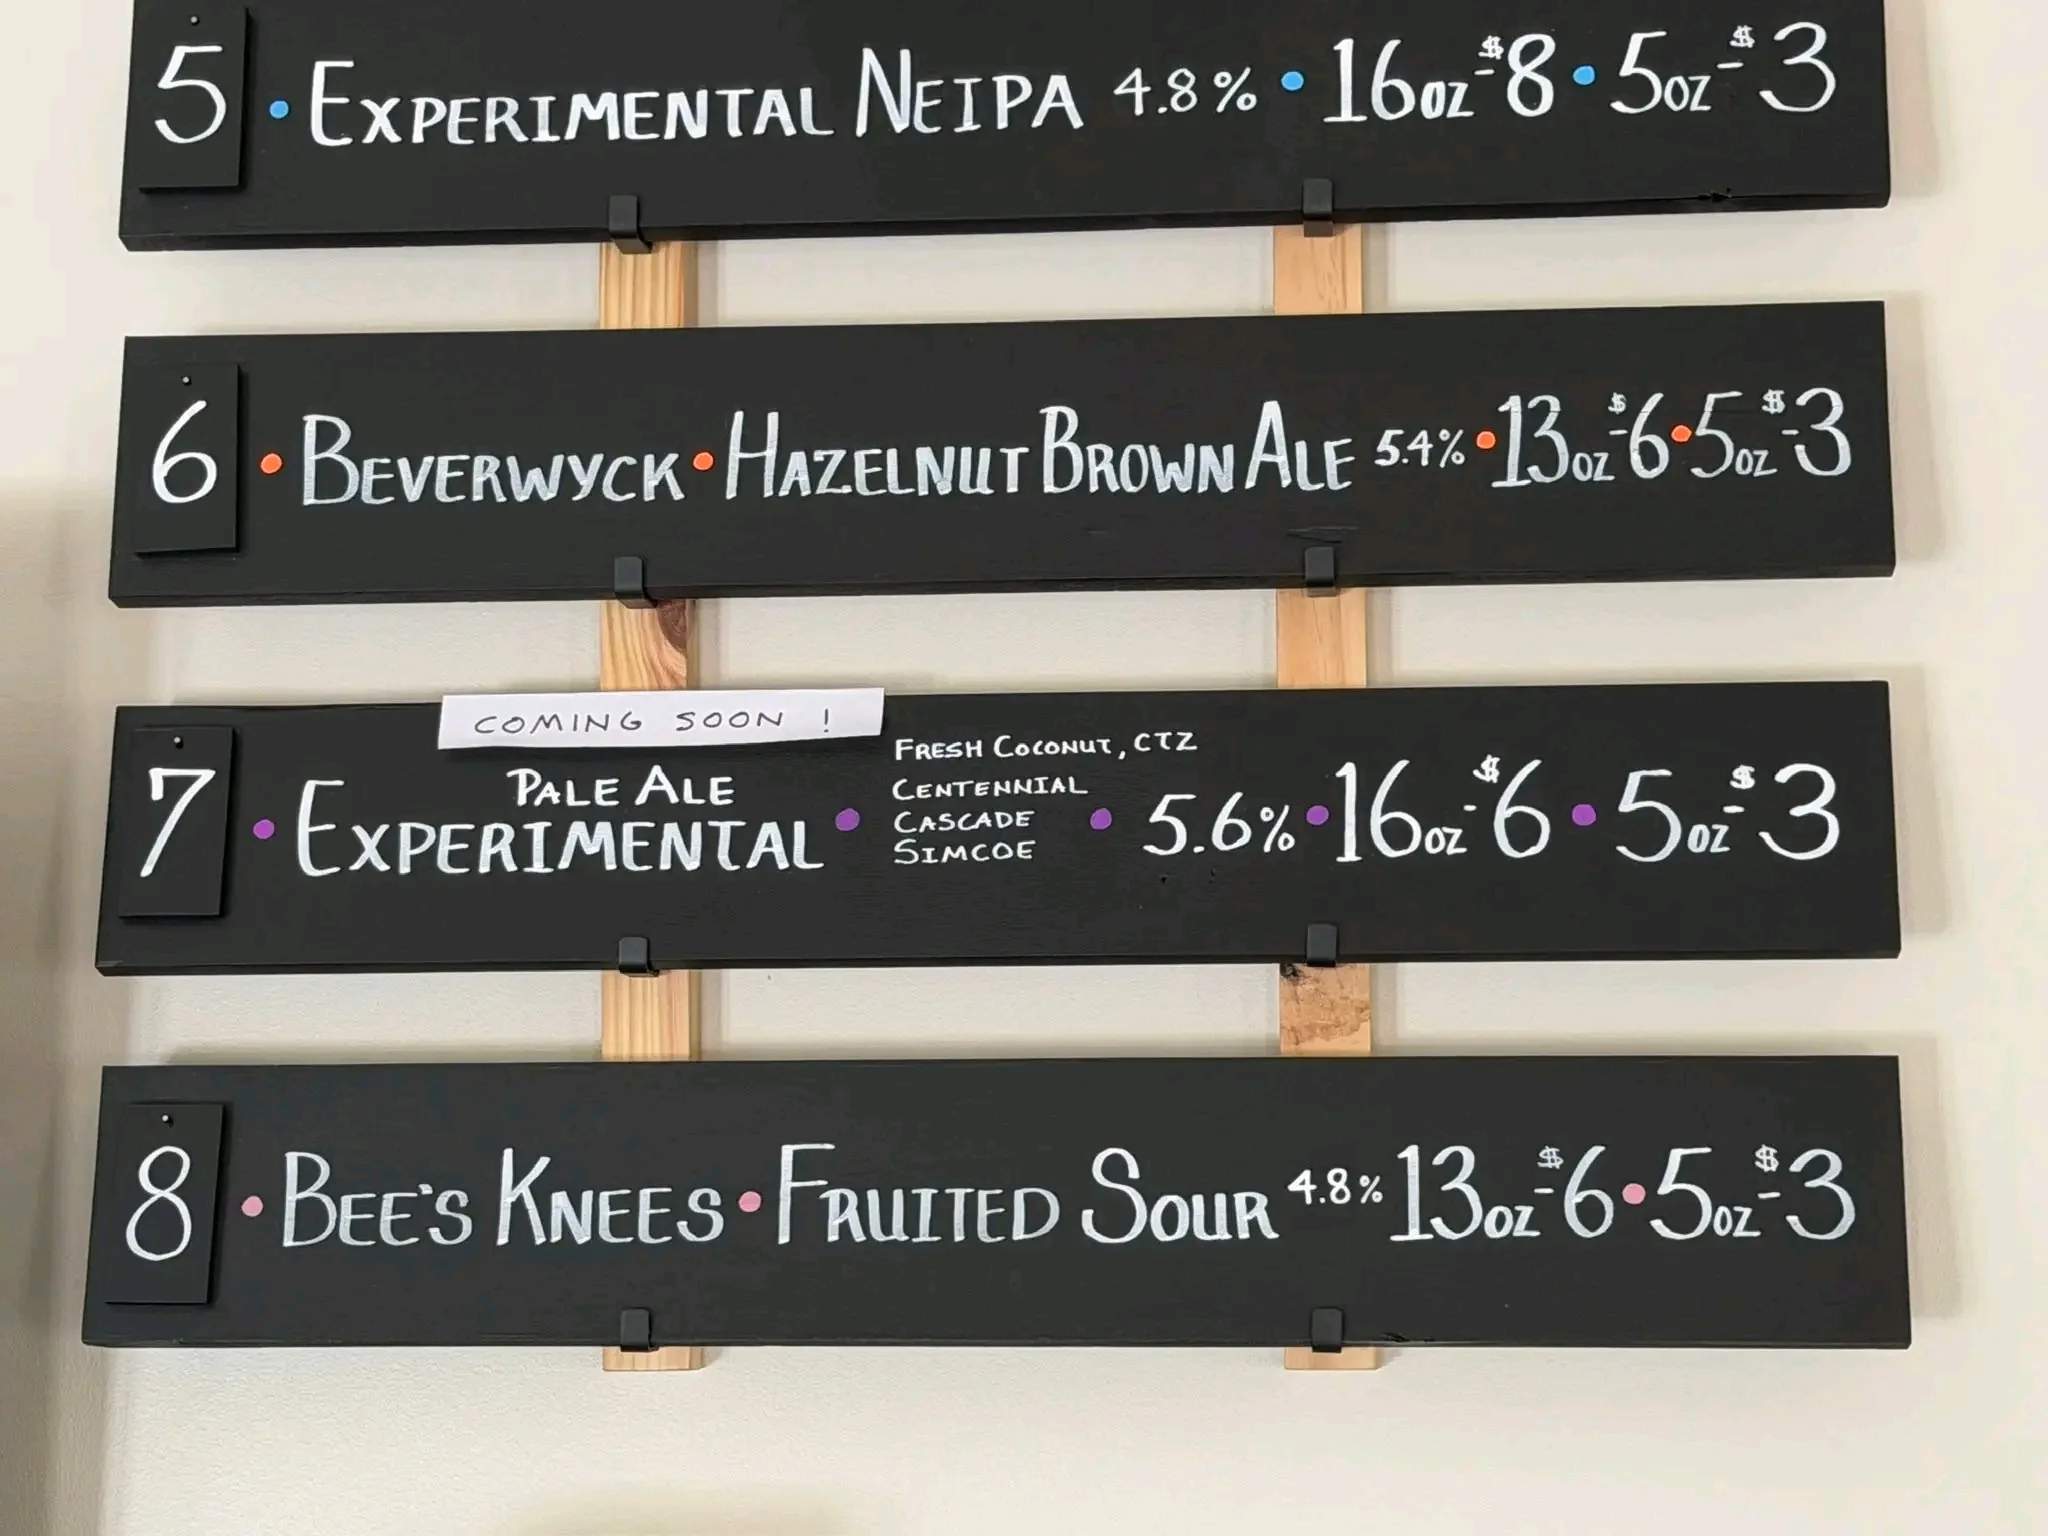 5 • EXPERIMENTAL NEIPA 4.8% • 16oz-$8 • 5oz-$3
6 • BEVERWYCK • HAZELNUT BROWN ALE 5.4% • 13oz-$6 • 5oz-$3
COMING SOON !
7 • PALE ALE
EXPERIMENTAL • FRESH COCONUT, CTZ
CENTENNIAL
CASCADE
SIMCOE • 5.6% • 16oz-$6 • 5oz-$3
8 • BEE'S KNEES • FRUITED SOUR 4.8% 13oz-$6 • 5oz-$3